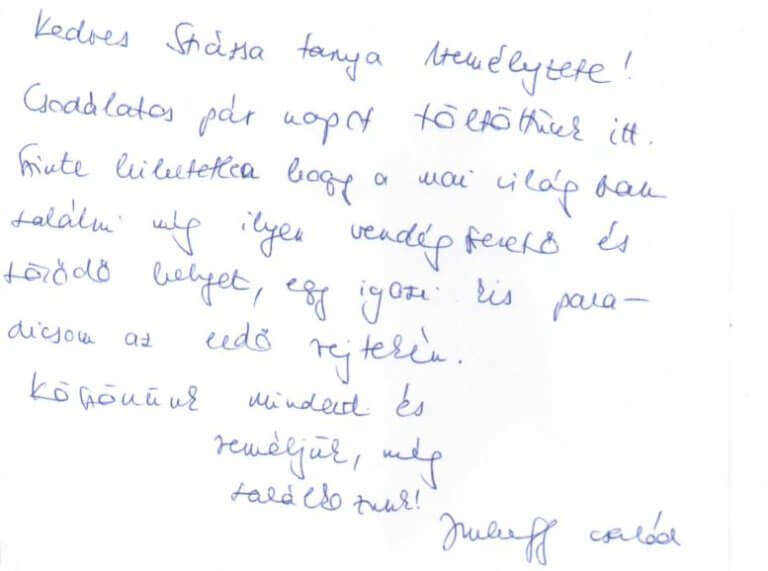 Kedves Strázsa tanya személyzete!
Csodálatos pár napot töltöttünk itt.
Szinte hihetetlen hogy a mai világban
találni még ilyen vendégszerető és
törődő helyet, egy igazi kis para-
dicsom az erdő rejtekén.
Köszönünk mindent és
reméljük, még
találkozunk!
család